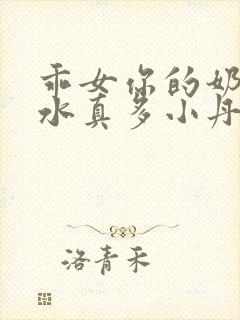 乖女你的奶
水真多小丹
洛青禾